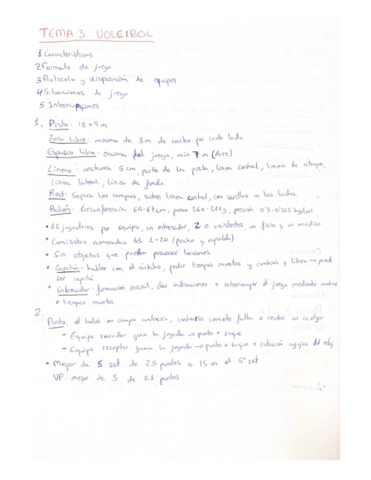 TEMA 3 VOLEIBOL
1 Características
2 Formato de juego
3 Protocolo y disposición de equipos
4 Situaciones de juego
5 Interrupciones
1. Pista: 18x9 m
Zona libre: mínimo de 3m de ancho por cada lado
Espacio libre: encima del juego, min 7 m (Aire)
Líneas: anchura 5 cm, parte de la pista, línea central, línea de ataque,
línea lateral, línea de fondo
Red: Separa los campos, sobre línea central, con varillas a los lados
Balón: Circunferencia 65-67cm, peso 260-280g, presión 0.3-0'325 kg/cm
• 12 jugadores por equipo, un entrenador, 2 asistentes, un fisio y un médico
• Camisetas numeradas del 1-20 (pecho y espalda)
• Sin objetos que puedan provocar lesiones
• Capitán: hablar con el árbitro, pedir tiempos muertos y cambios y líbero no puede
ser capitán
• Entrenador: formación inicial, dar indicaciones e interrumpir el juego mediante cambios
o tiempos muertos
2.
Punto: el balón en campo contrario, contrario comete falta o recibe un castigo
- Equipo sacador gana la jugada → punto + saque
- Equipo receptor gana la jugada → punto + saque + rotación agujas del reloj
• Mejor de 5 set de 25 puntos o 15 en el 5º set
VP: mejor de 3 de 21 puntos